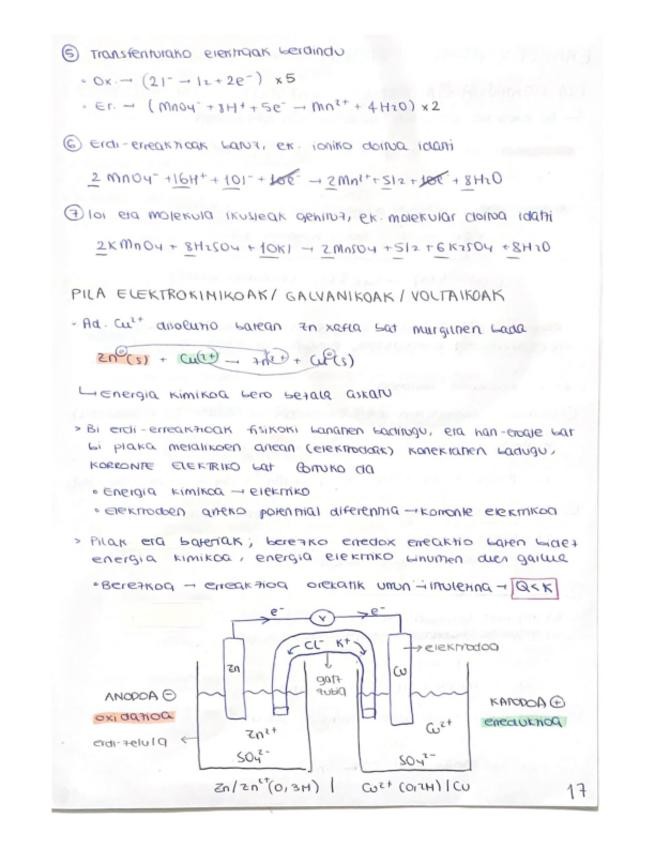 ⑤ Transferiturako elektroiak berdindu
• Ox. → (2I⁻ → I2 + 2e⁻) x5
• Er. → (MnO4⁻ + 8H⁺ + 5e⁻ → Mn²⁺ + 4H2O) x2
⑥ Erdi-erreakzioak batuz, ek. ionikoa doitua idatzi
2 MnO4⁻ + 16H⁺ + 10I⁻ + 10e⁻ → 2Mn²⁺ + 5I2 + 10e⁻ + 8H2O
⑦ Ioi eta molekula ikusleak gehituz, ek. molekular doitua idatzi
2KMnO4 + 8H2SO4 + 10KI → 2MnSO4 + 5I2 + 6K2SO4 + 8H2O
PILA ELEKTROKIMIKOAK / GALVANIKOAK / VOLTAIKOAK
- Ad. Cu²⁺ disoluzio batean Zn xafla bat murgiltzen bada
Zn⁰(s) + Cu²⁺ → Zn²⁺ + Cu⁰(s)
↳ Energia kimikoa bero bezala askatu
> Bi erdi-erreakzioak fisikoki banatzen baditugu, eta kan-eroale bat
bi plaka metalikoen artean (elektrodoak) konektatzen badugu,
KORRONTE ELEKTRIKO bat sortuko da
• Energia kimikoa → elektriko
• Elektrodoen arteko potentzial diferentzia → korronte elektrikoa
> Pilak eta bateriak, berezko erredox erreakzio baten bidez
energia kimikoa, energia elektriko bihurtzen duen gailua
• Berezkoa → erreakzioa orekatik urrun → itzulezina → Q<K
e⁻ V e⁻
Zn Cl⁻ K⁺ Cu → elektrodoa
gatz zubia
ANODOA ⊖ KATODOA ⊕
oxidazioa Zn²⁺ Cu²⁺ erredukzioa
erdi-zelula SO4²⁻ SO4²⁻
Zn/Zn²⁺ (0,3M) | Cu²⁺ (0,2M) | Cu
17